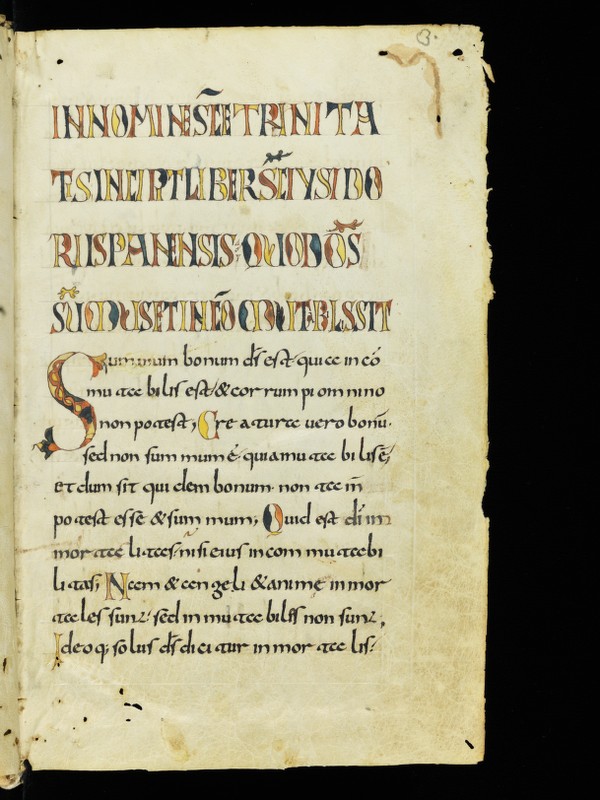 3.
INNOMINE SC̄E TRINITA
TIS INCIPIT LIBER SC̄I YSIDO
RI ISPANENSIS QUOD D̄S
SŪMUS ET INCŌMUTABILIS SIT
Summum bonum d̄s est quia in cō
mutabilis est & corrumpi omnino
non potest; Creatura uero bonū.
sed non summum ē. quia mutabilis ē;
et dum sit quidem bonum. non tam̄
potest esse & summum; Quid est d̄i im
mortalitas. nisi eius incommutabi
litas; Nam & angeli & anime inmor
tales sunt. sed inmutabiles non sunt,
Ideoq; solus d̄s dicitur inmortalis.